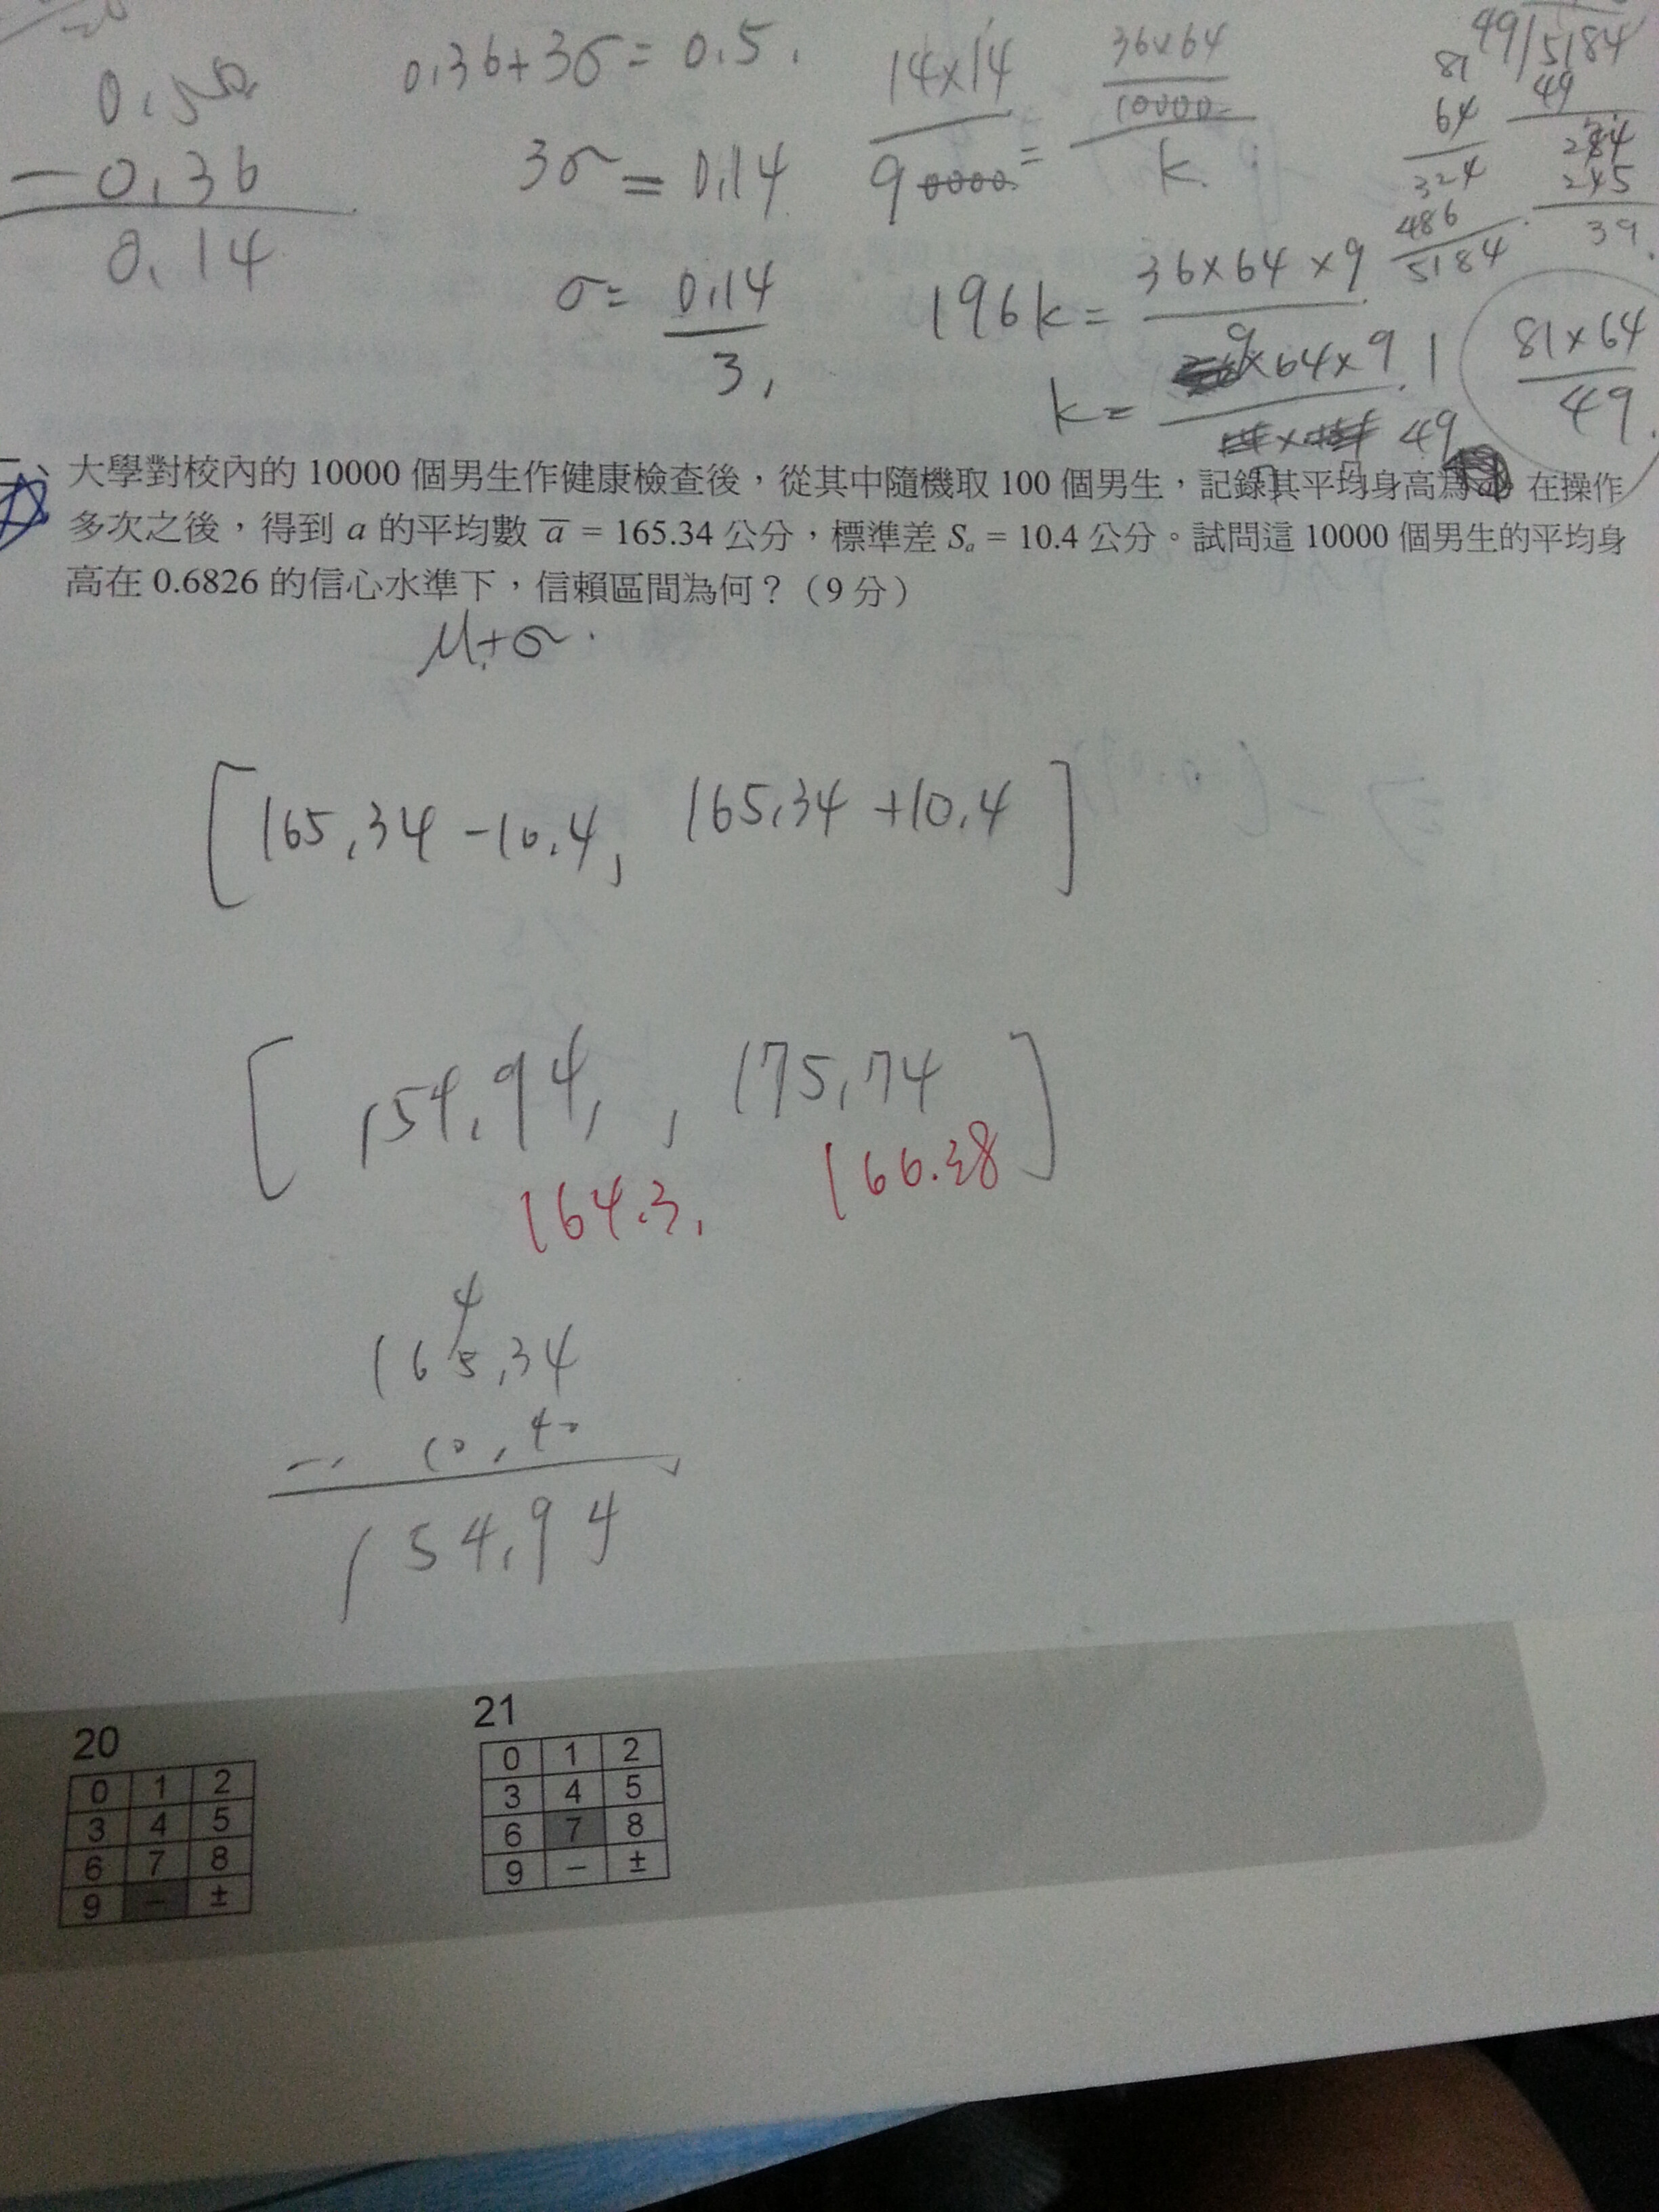 0.50
-0.36
0.14
0.36+3σ=0.5.
3σ=0.14
σ=0.14/3,
14×14/90000=36×64/10000/k
196k=36×64×9
k=9×64×9/49
81
64
324
486
5184
49/5184
49
284
245
39
81×64/49
大學對校內的 10000 個男生作健康檢查後,從其中隨機取 100 個男生,記錄其平均身高為 在操作
多次之後,得到 a 的平均數 a̅ = 165.34 公分,標準差 Sₐ = 10.4 公分。試問這 10000 個男生的平均身
高在 0.6826 的信心水準下,信賴區間為何?(9 分)
μ+σ.
[165.34-10.4, 165.34+10.4]
[154.94, , 175.74]
164.3, 166.38
4
165.34
- 10.40
154.94
20
21
0 1 2
3 4 5
6 7 8
9 − ±
0 1 2
3 4 5
6 7 8
9 − ±